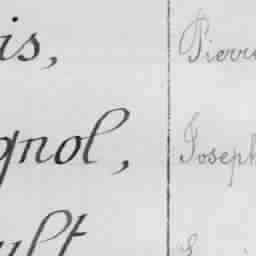 is, Pierre
gnol, Joseph
ult